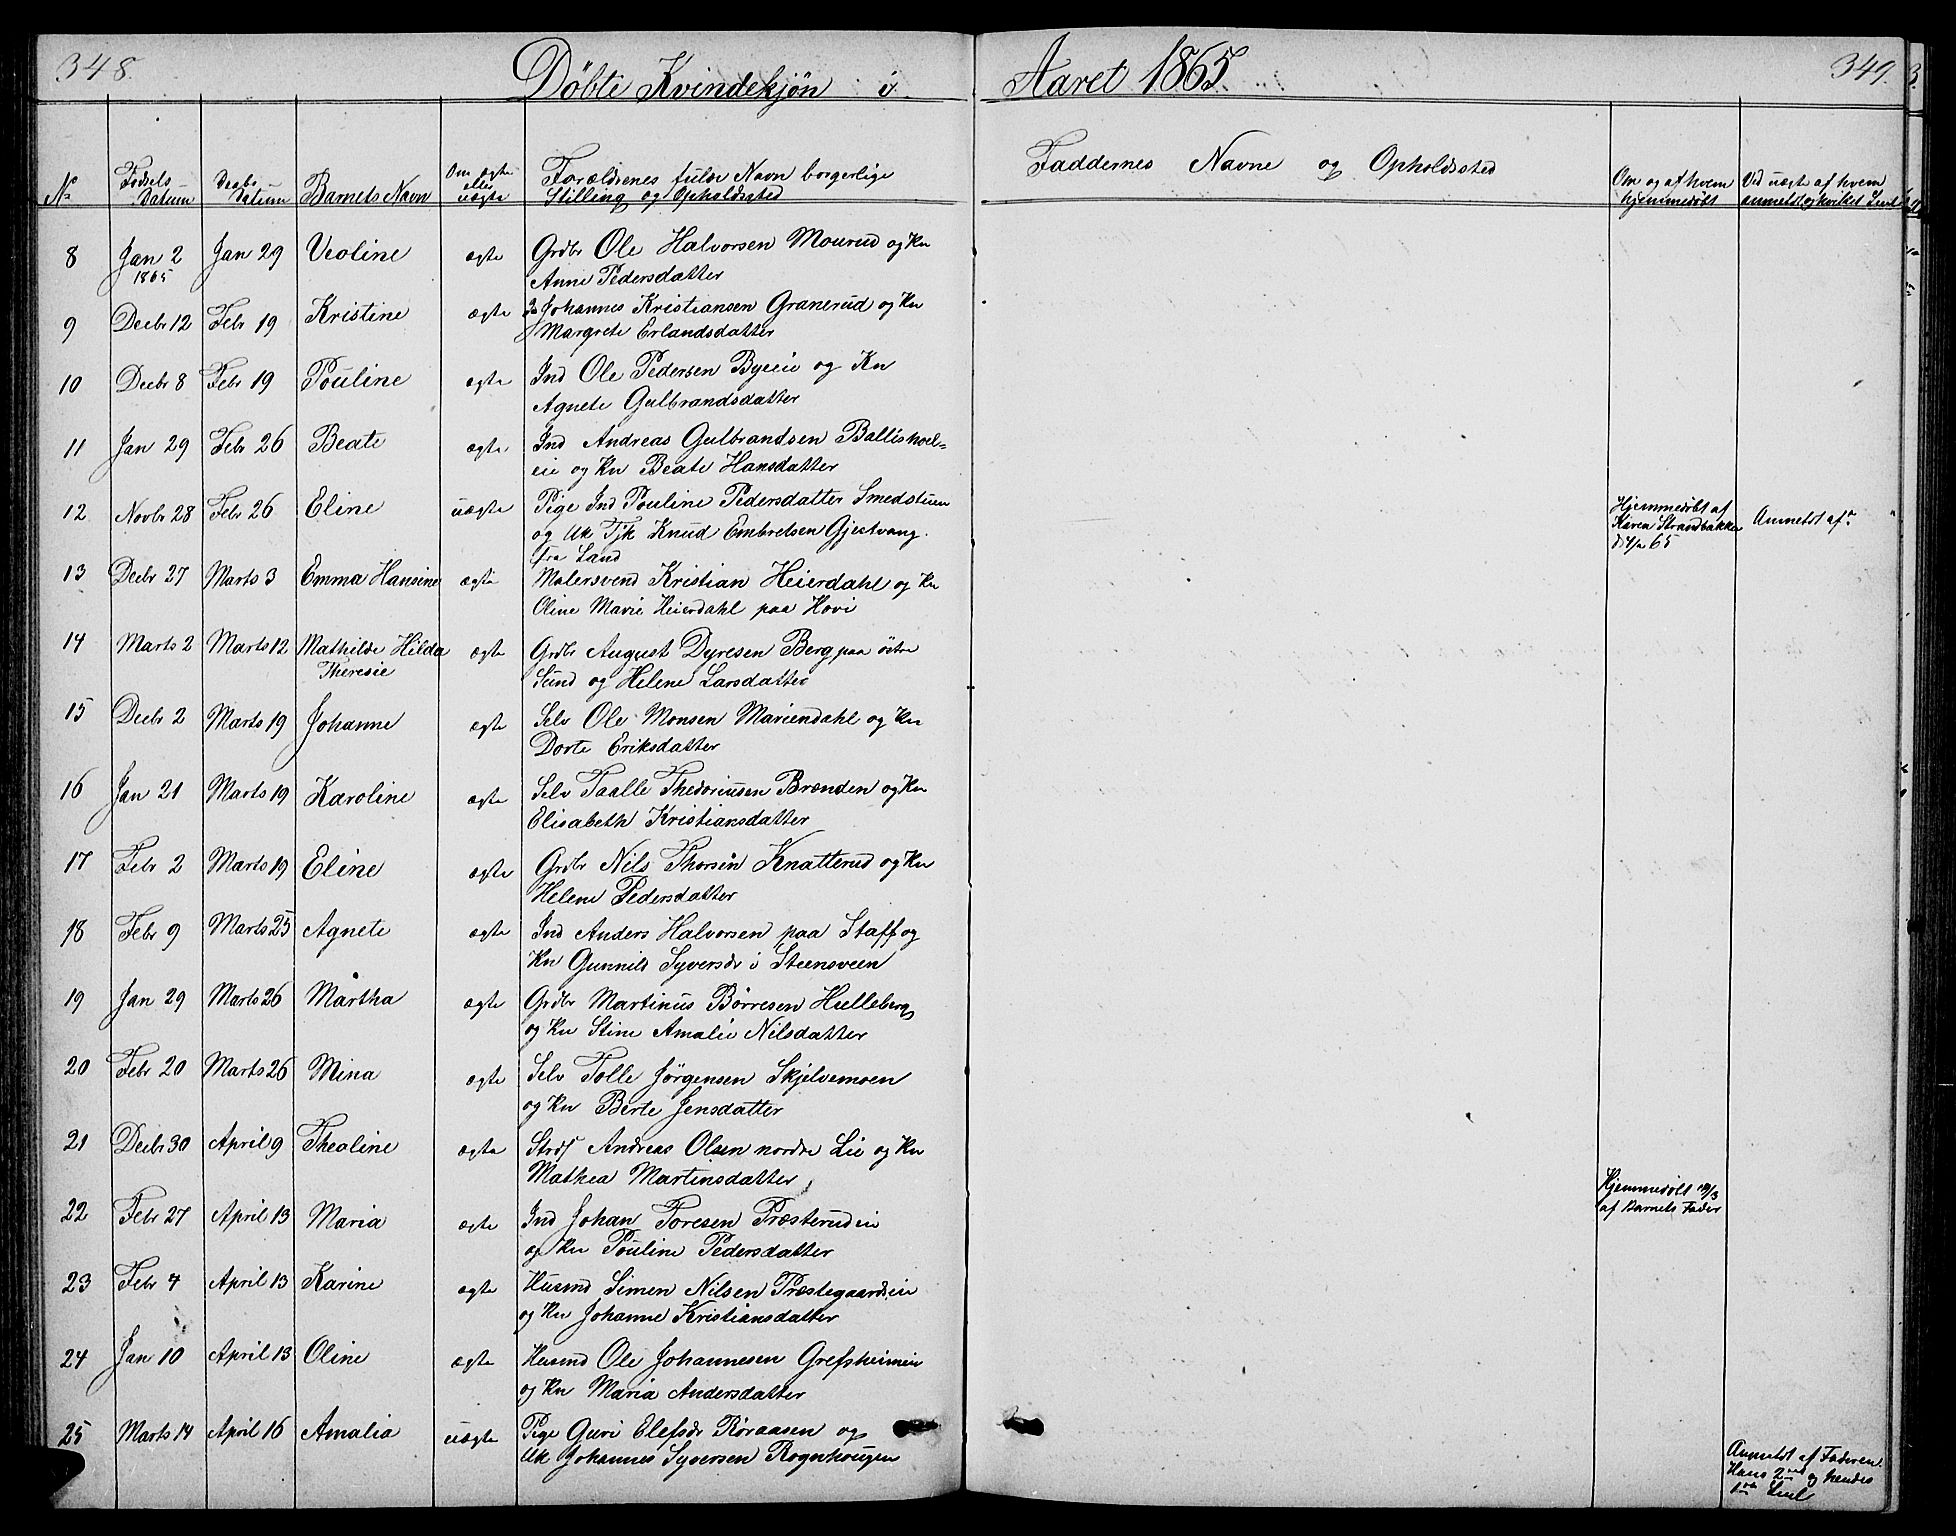 348.
Döbte Kvindekjön i
Aaret 1865.
349.
No
Födsels Datum
Daabs Datum
Barnets Navn
Om ægte eller uægte
Forældrenes fulde Navn borgerlige
Stilling og Opholdssted
Faddernes Navne og Opholdssted
Om og af hvem
hjemmedöbt
Ved uægte af hvem
anmeldt og hvilket Leiermaal
8 Jan 2 Jan 29 Veoline ægte Grdbr Ole Halvorsen Mourud og Kn
1865 Anne Pedersdatter
9 Decbr 12 Febr 19 Kristine ægte Johannes Kristiansen Granerud og Kn
Margrete Erlandsdatter
10 Decbr 8 Febr 19 Pouline ægte Ind Ole Pedersen Byeie og Kn
Agnete Gulbrandsdatter
11 Jan 29 Febr 26 Beate ægte Ind Andreas Gulbrandsen Ballishoel=
eie og Kn Beate Hansdatter
12 Novbr 28 Febr 26 Eline uægte Pige Ind Pouline Pedersdatter Smedstuen
og Uk Tjk Knud Embretsen Gjestvang
fra Land
Hjemmedöbt af
Karen Strandbakke
65
Anmeldt af
13 Decbr 27 Marts 3 Emma Hansine ægte Malersvend Kristian Heierdahl og Kn
Oline Marie Heierdahl paa Hovi
14 Marts 2 Marts 12 Mathilde Hilda ægte Grdbr August Dyresen Berg paa östre
Theresie Sund og Helene Larsdatter
15 Decbr 2 Marts 19 Johanne ægte Selv Ole Monsen Mariendahl og Kn
Dorte Eriksdatter
16 Jan 21 Marts 19 Karoline ægte Selv Taalle Thedoriusen Brænden og Kn
Elisabeth Kristiansdatter
17 Febr 2 Marts 19 Eline ægte Grdbr Nils Thorsen Knatterud og Kn
Helene Pedersdatter
18 Febr 9 Marts 25 Agnete ægte Ind Anders Halvorsen paa Staff og
Kn Gunnild Syversdr i Steensveen
19 Jan 29 Marts 26 Martha ægte Grdbr Martinus Börresen Hulleberg
og Kn Stine Amalie Nilsdatter
20 Febr 20 Marts 26 Mina ægte Selv Tolle Jörgensen Skjelvemoen
og Kn Berte Jensdatter
21 Decbr 30 April 9 Theoline ægte Strdf Andreas Olsen nordre Lie og Kn
Mathea Martinsdatter
22 Febr 27 April 13 Maria ægte Ind Johan Toresen Præsterudeie
og Kn Pouline Pedersdatter
Hjemmedöbt
af Barnets Fader
23 Febr 4 April 13 Karine ægte Husmd Simen Nilsen Præstegaardseie
og Kn Johanne Kristiansdatter
24 Jan 10 April 13 Oline ægte Husmd Ole Johannesen Grefsheimeie
og Kn Maria Andersdatter
25 Marts 14 April 16 Amalia uægte Pige Guri Elefsdr Röraasen og
Uk Johannes Syversen Rognhougen
Anmeldt af Faderen.
Hans 2det og hendes
1ste Leiel